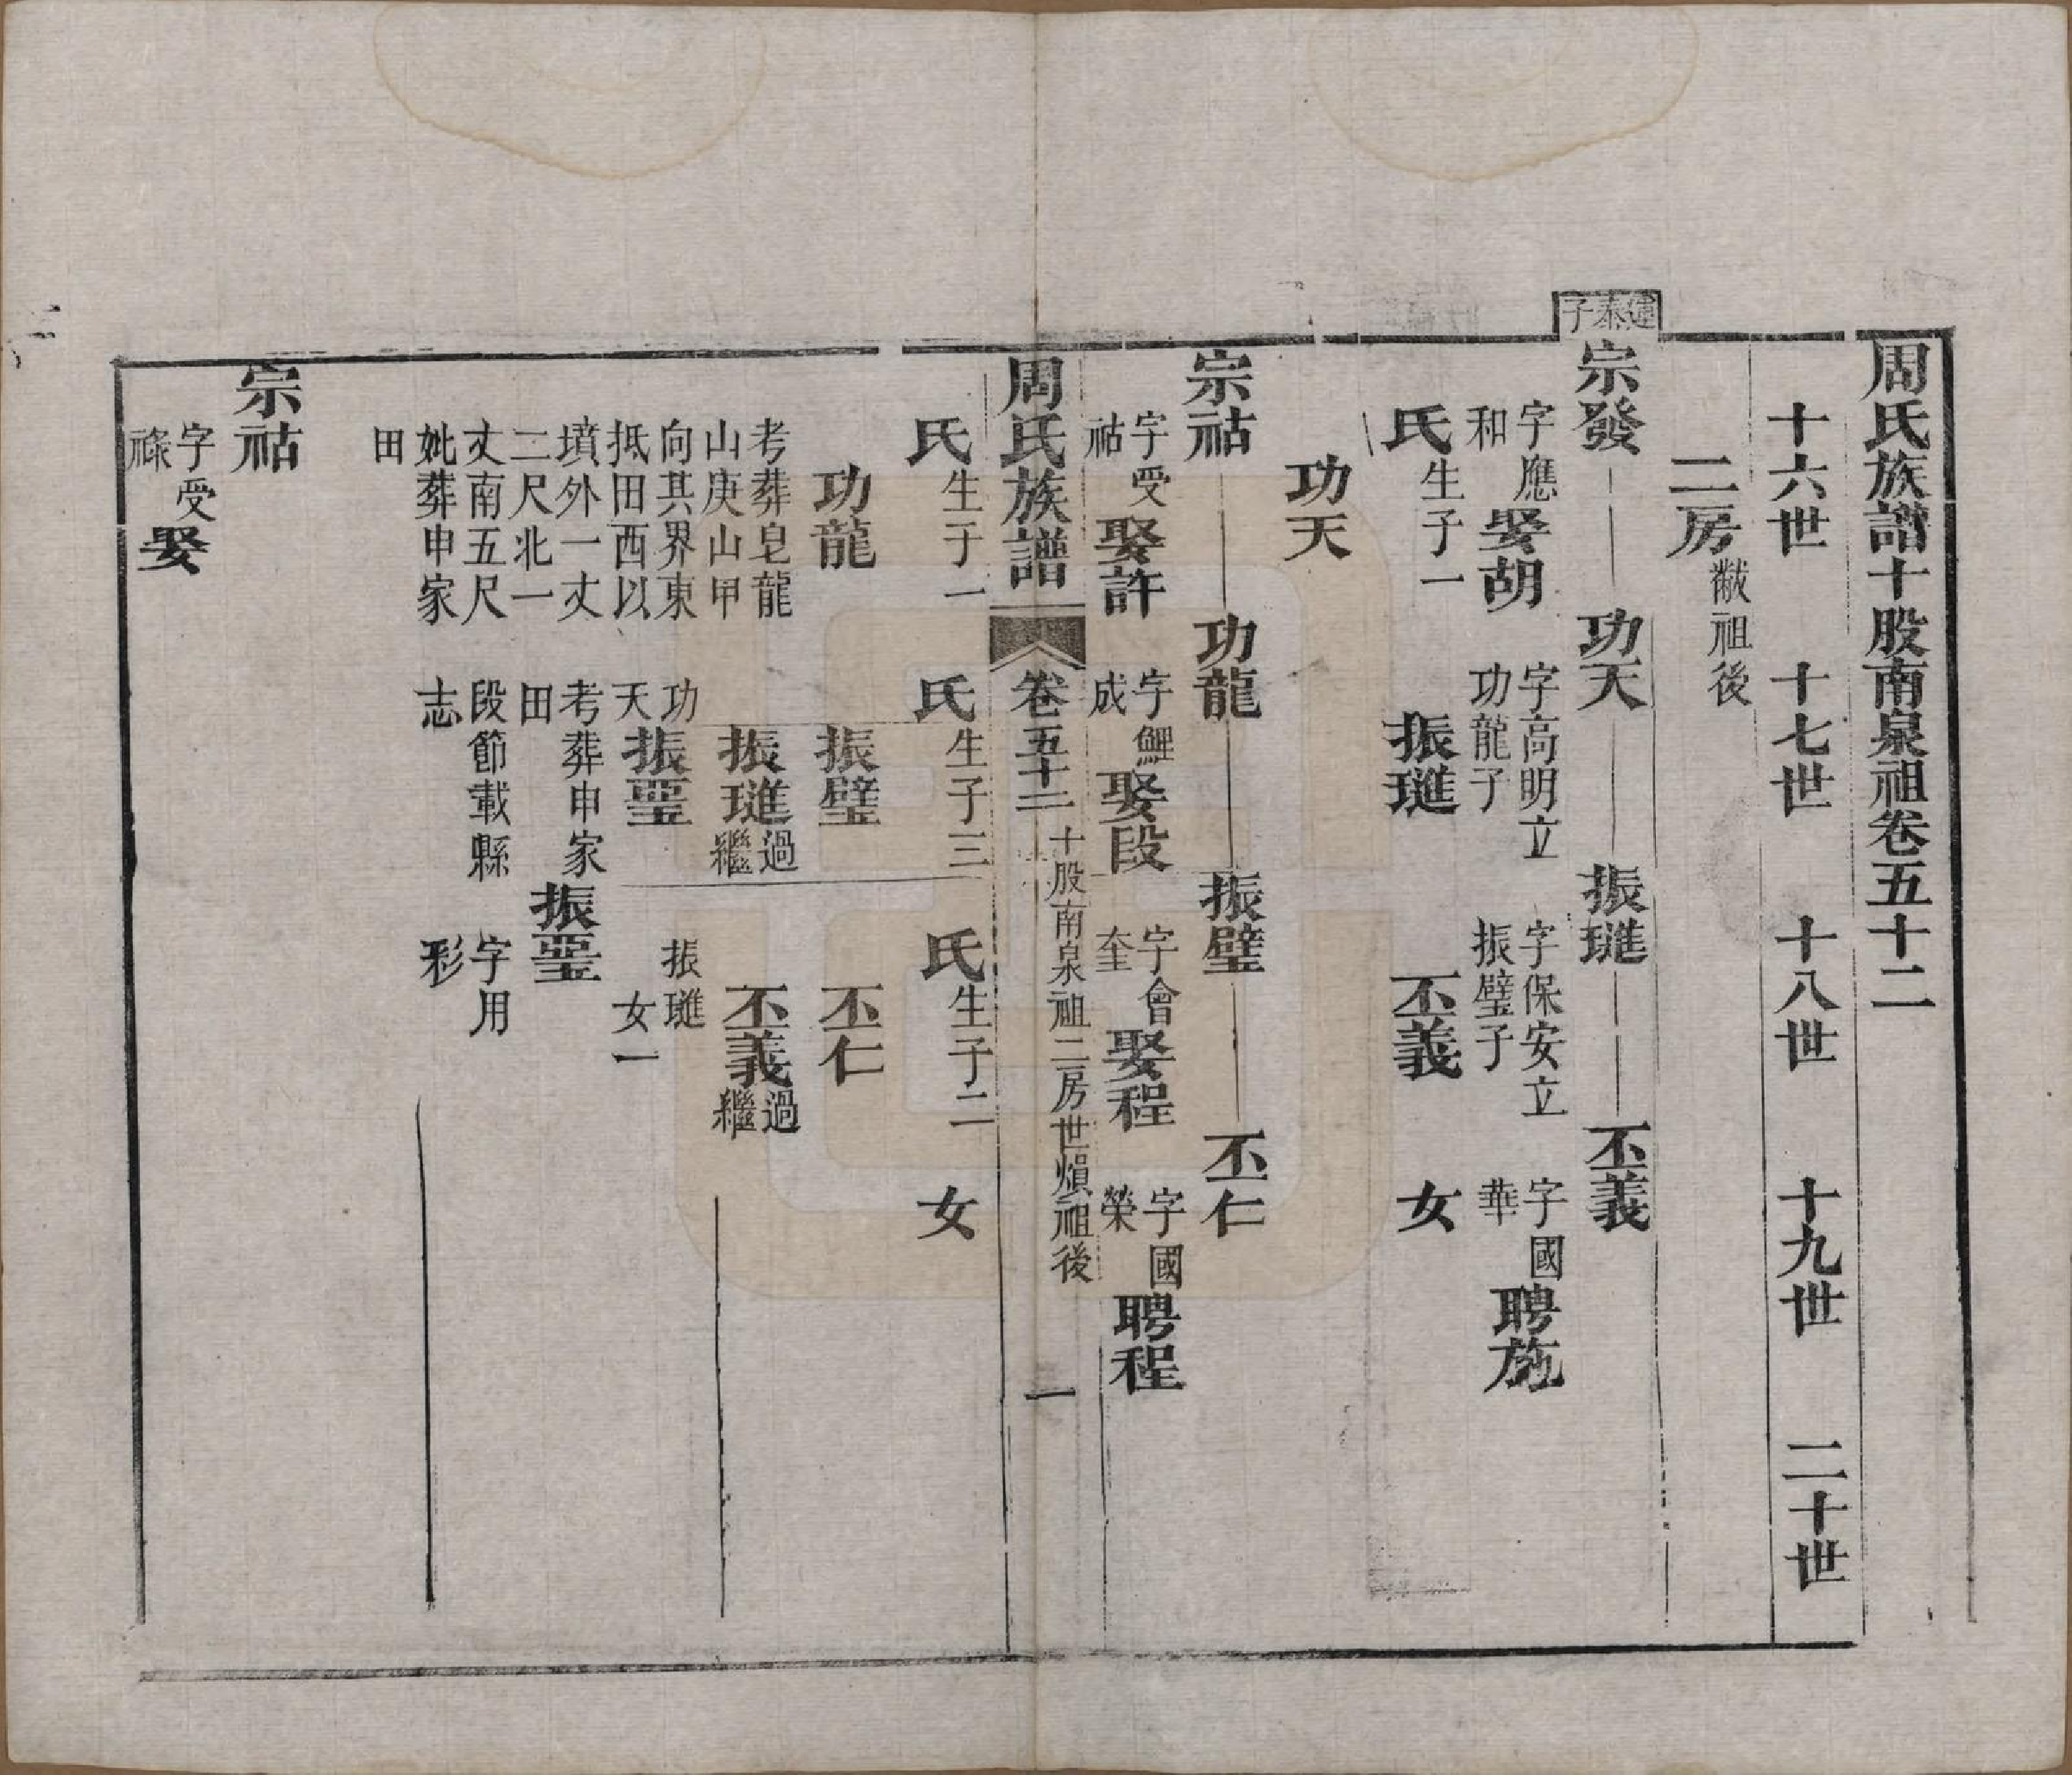 周氏族譜十股南泉祖卷五十二
十六世 十七世 十八世 十九世 二十世
二房黻祖後
建泰子
宗發 功天 振璡 丕義
字應和娶胡 字高明立功龍子 字保安立振璧子 字國華聘施
氏生子一 振璡 丕義 女
功天
宗祜 功龍 振璧 丕仁
字受祜娶許 字鯉成娶段 字會奎娶程 字國榮聘程
周氏族譜 卷五十二 十股南泉祖二房世熉祖後 一
氏生子一 氏生子三 氏生子二 女
功龍 振璧 丕仁
考葬皂龍 振璡過繼 丕義過繼
山庚山甲
向其界東 功天 振璡
抵田西以 振琞 女一
墳外一丈 考葬申家田 振琞
二尺北一
丈南五尺 段節載縣志 字用彩
妣葬申家
田
宗祜
字受祿娶